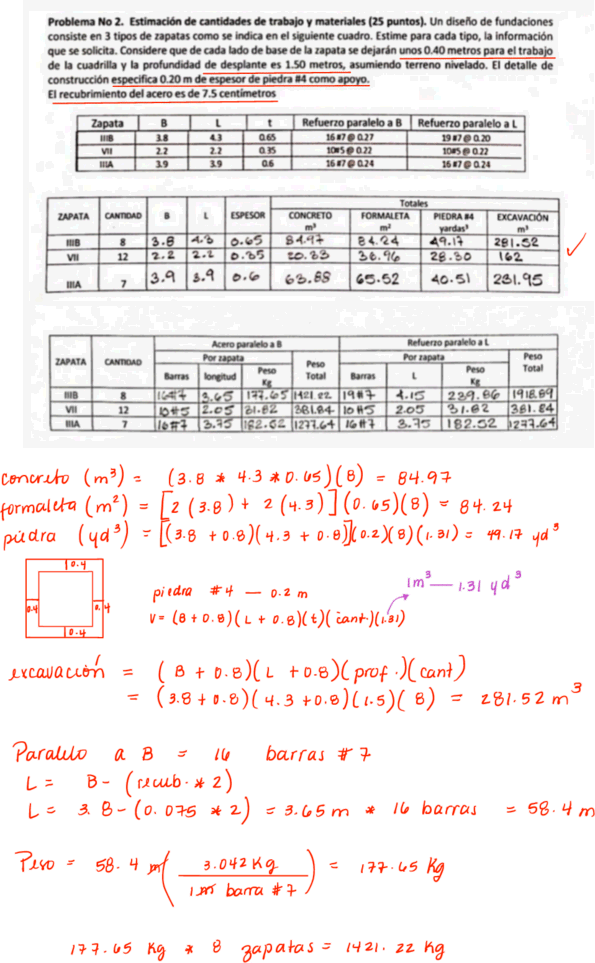 Problema No 2. Estimación de cantidades de trabajo y materiales (25 puntos). Un diseño de fundaciones
consiste en 3 tipos de zapatas como se indica en el siguiente cuadro. Estime para cada tipo, la información
que se solicita. Considere que de cada lado de base de la zapata se dejarán unos 0.40 metros para el trabajo
de la cuadrilla y la profundidad de desplante es 1.50 metros, asumiendo terreno nivelado. El detalle de
construcción especifica 0.20 m de espesor de piedra #4 como apoyo.
El recubrimiento del acero es de 7.5 centímetros
Zapata B L t Refuerzo paralelo a B Refuerzo paralelo a L
IIIB 3.8 4.3 0.65 16 #7 @ 0.27 19 #7 @ 0.20
VII 2.2 2.2 0.35 10#5 @ 0.22 10#5 @ 0.22
IIIA 3.9 3.9 0.6 16 #7 @ 0.24 16 #7 @ 0.24
Totales
ZAPATA CANTIDAD B L ESPESOR CONCRETO m³ FORMALETA m² PIEDRA #4 yardas³ EXCAVACIÓN m³
IIIB 8 3.8 4.3 0.65 84.97 84.24 49.17 281.52
VII 12 2.2 2.2 0.35 20.33 36.96 28.30 162
IIIA 7 3.9 3.9 0.6 63.88 65.52 40.51 231.95
Acero paralelo a B Refuerzo paralelo a L
ZAPATA CANTIDAD Por zapata Peso Total Por zapata Peso Total
Barras longitud Peso Kg Barras L Peso Kg
IIIB 8 16#7 3.65 177.65 1421.22 19#7 4.15 239.86 1918.89
VII 12 10#5 2.05 31.82 381.84 10#5 2.05 31.82 381.84
IIIA 7 16#7 3.75 182.52 1277.64 16#7 3.75 182.52 1277.64
concreto (m³) = (3.8 * 4.3 * 0.65)(8) = 84.97
formaleta (m²) = [2 (3.8) + 2 (4.3)] (0.65)(8) = 84.24
piedra (yd³) = [(3.8 + 0.8)(4.3 + 0.8)](0.2)(8)(1.31) = 49.17 yd³
0.4
0.4 0.4
0.4
piedra #4 — 0.2 m
1m³ — 1.31 yd³
V = (B + 0.8)(L + 0.8)(t)(cant)(1.31)
excavación = (B + 0.8)(L + 0.8)(prof.)(cant)
= (3.8 + 0.8)(4.3 + 0.8)(1.5)(8) = 281.52 m³
Paralelo a B = 16 barras #7
L = B - (recub. * 2)
L = 3.8 - (0.075 * 2) = 3.65 m * 16 barras = 58.4 m
Peso = 58.4 m (3.042 Kg / 1 m barra #7) = 177.65 Kg
177.65 Kg * 8 zapatas = 1421.22 Kg